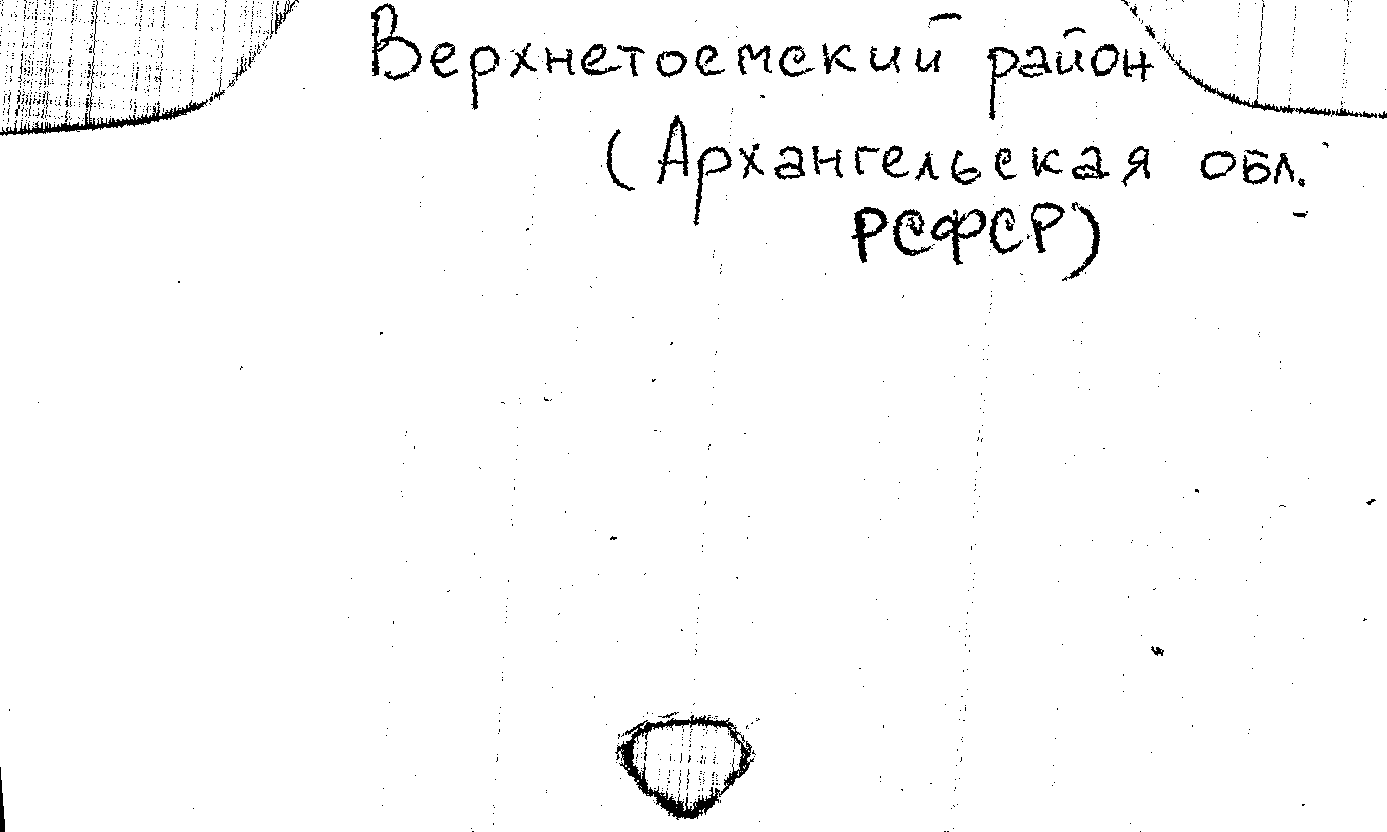 Верхнетоемский район
(Архангельская обл.
РСФСР)